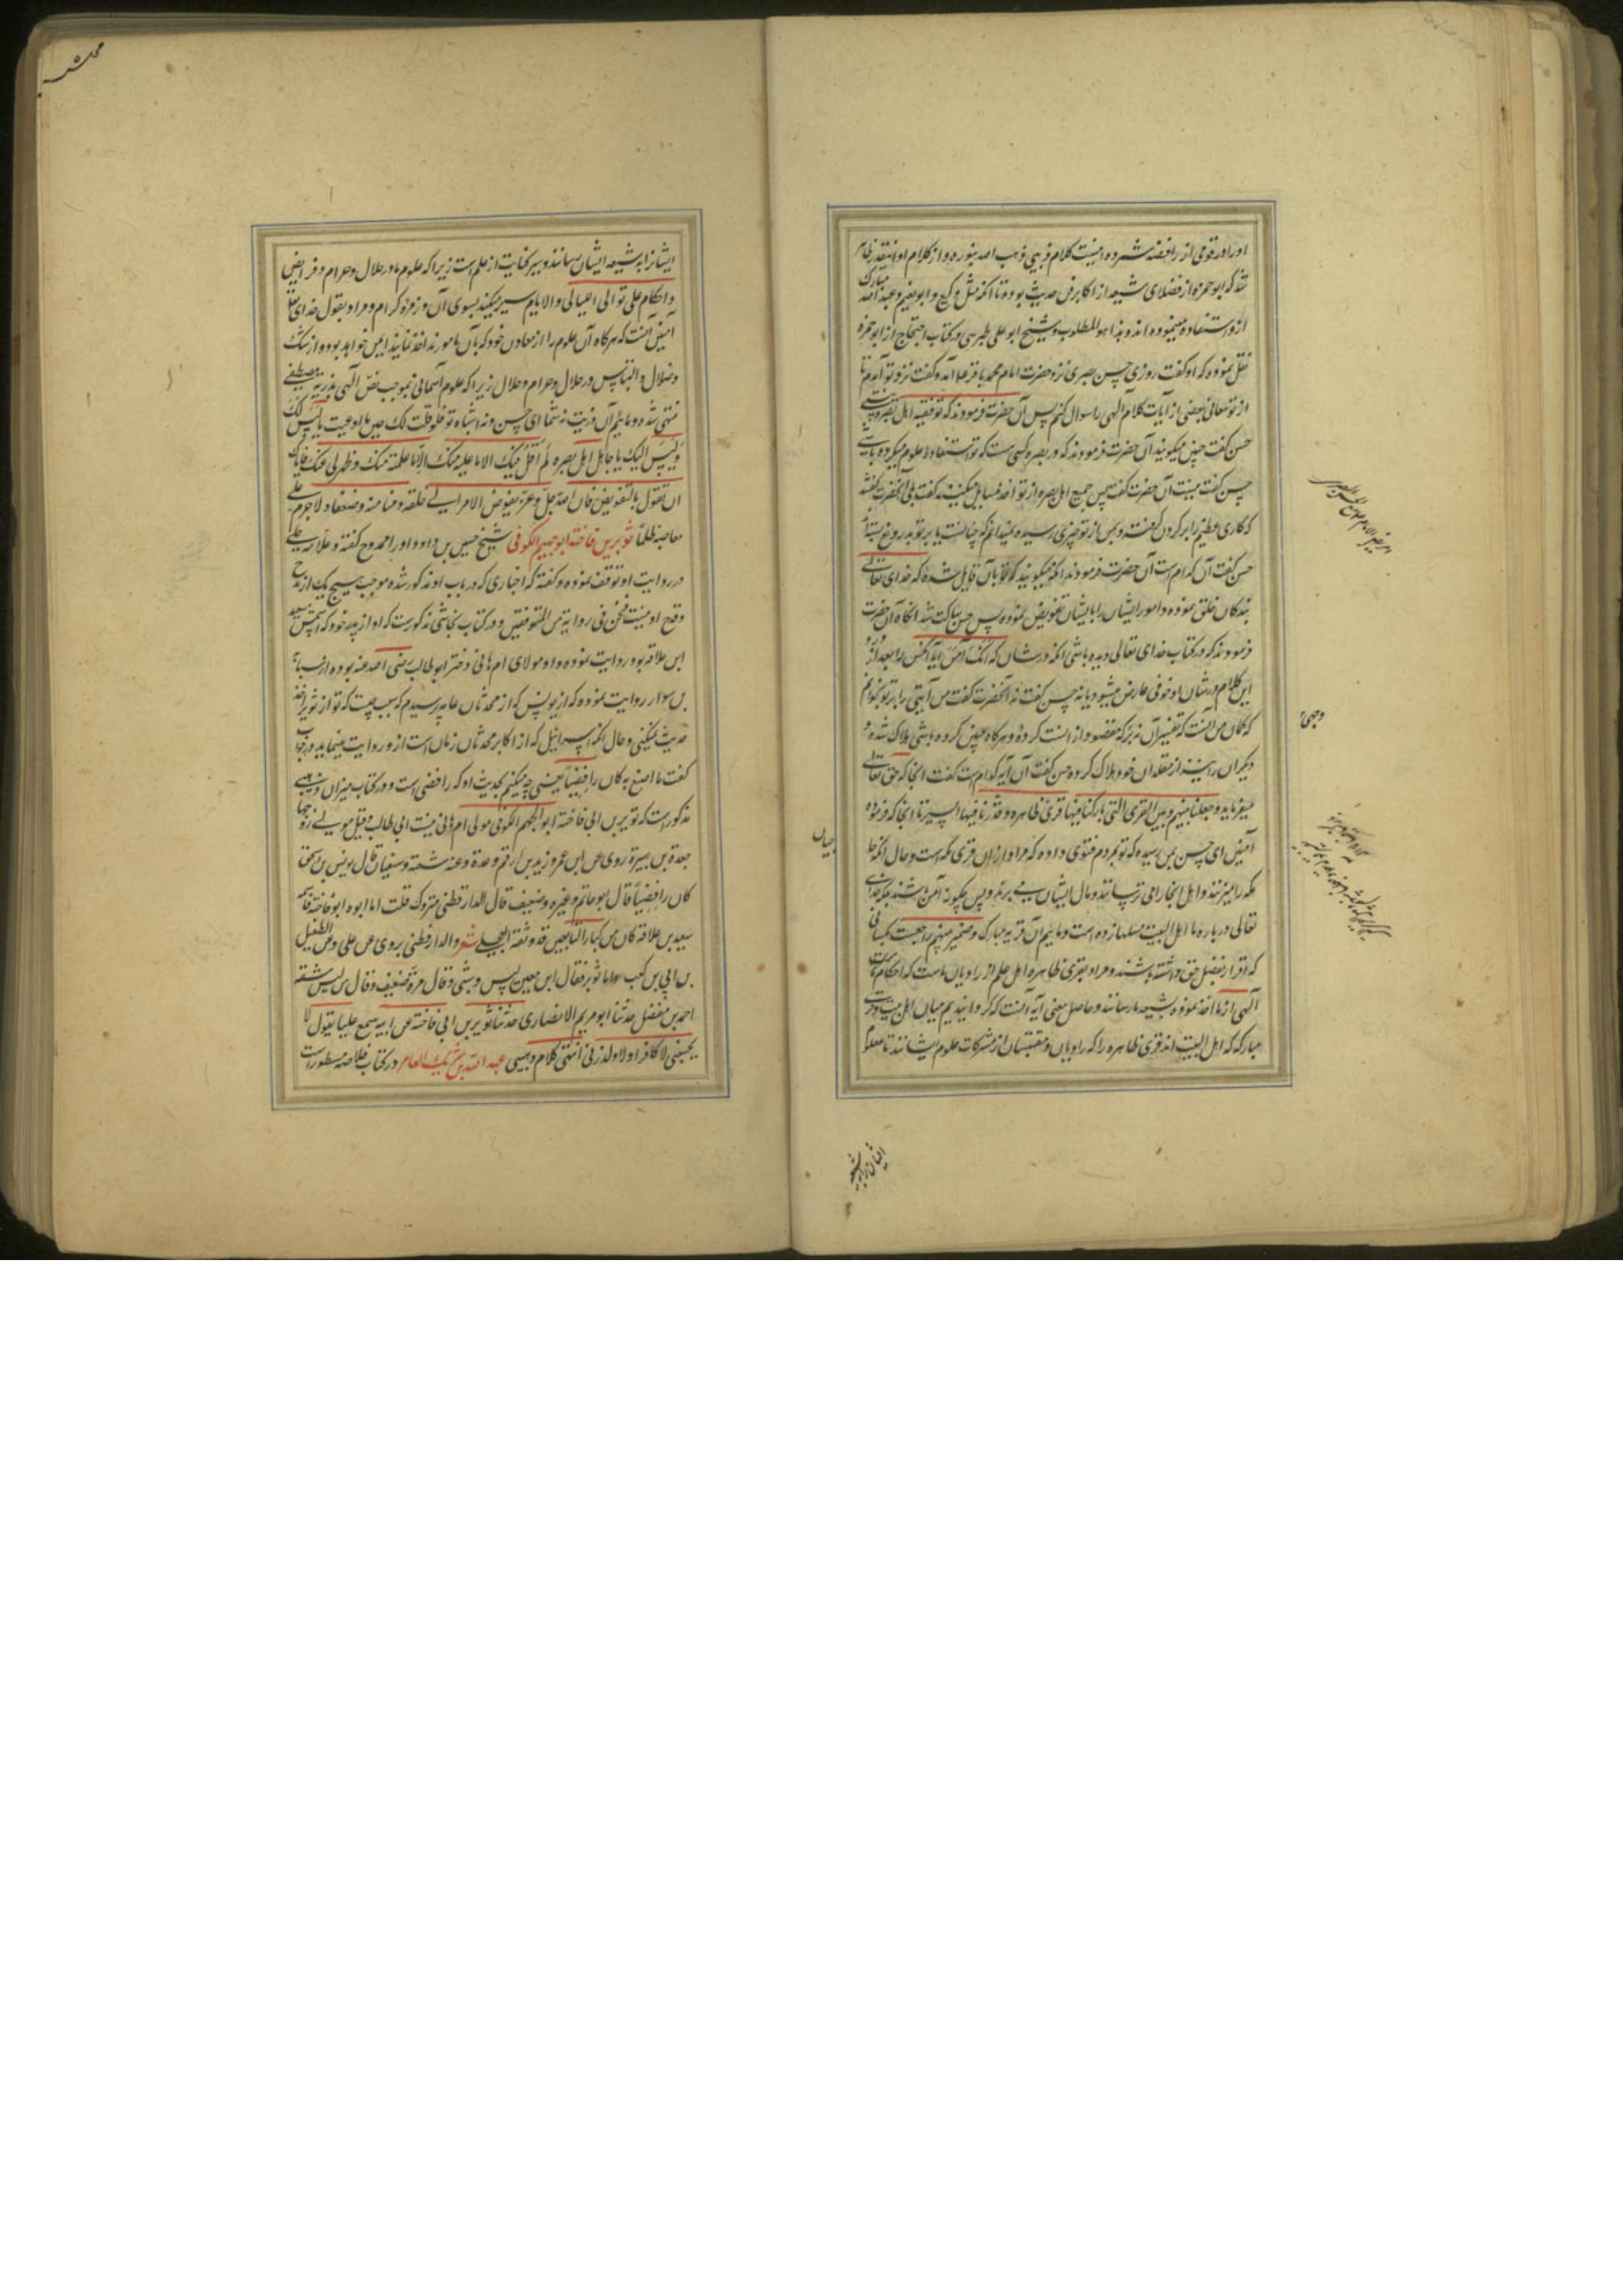 اورا در قومی از رافضه شمرده اینست کلام ذهبی ذهب الله بنوره و از کلام او اینقدر ظاهر
شد که ابو حمزه از فضلای شیعه از اکابر فن حدیث بوده تا آنکه مثل وکیع و ابو نعیم و عبد الله مبارک
ازو استفاده مینموده اند و هذا هو المطلوب و شیخ ابو علی طبرسی در کتاب احتجاج از ابو حمزه
نقل نموده که او گفت روزی حسن بصری نزد حضرت امام محمد باقر علیه آمد و گفت نزد تو آمدم تا
از تو معانی بعضی از آیات کلام الهی را سوال کنم پس آن حضرت فرمودند که تو فقیه اهل بصره نیستی
حسن گفت چنین میگویند آن حضرت فرمودند که در بصره کسی هست که تو استفاده علوم میکرده باشی
حسن گفت نیست آن حضرت گفت پس جمیع اهل بصره از تو اخذ مسایل میکنند گفت بلی آنحضرت گفتند
که کاری عظیم را بر گردن گرفته و بمن از تو چیزی رسیده نمیدانم که چنانست یا بر تو بدروغ بسته اند
حسن گفت آن کدام است آن حضرت فرمودند آنکه میگویند که تو بآن قایل شده که خدای تعالی
بندگان خلق نموده و امور ایشان را بایشان تفویض نموده پس حسن ساکت شد آنگاه آن حضرت
فرمودند که در کتاب خدای تعالی دیده باشی آنکه در شان که انک آمن آیا آنکس را بعد از ورود
این کلام در شان او خوفی عارض میشود یا نه حسن گفت نه آنحضرت گفت من آیتی را بر تو بخوانم
که گمان من آنست که تفسیر آن نه بر آنکه مقصود از انست کرده و هرگاه چنین کرده باشی هلاک شده و
دیگران را نیز از مقلدان خود هلاک کرده حسن گفت آن آیه کدام است گفت آنجا که حق تعالی
میفرماید و جعلنا بینهم و بین القری التی بارکنا فیها قری ظاهرة و قدرنا فیها السیر تا آنجا که فرموده
آمنین ای حسن بمن رسیده که تو بمردم فتوی داده که مراد از ان قری مکه است و حال آنکه حاج
مکه را میزنند و اهل آنجا را می ترسانند و مال ایشان می برند و پس چگونه آمن باشند بلکه خدای
تعالی درباره ما اهل البیت مثلها زده است و مائیم آن قریه مبارک و ضمیر بینهم راجعست بکسانی
که اقرار بفضل حق داشته باشند و مراد بقری ظاهره اهل علم از راویان ماست که احکام
الهی از ما اخذ نموده بشیعه ما رسانند و حاصل معنی آیه آنست که گردانیدیم میان اهل بیت و قری
مبارکه که اهل البیت اند قری ظاهره را که راویان و مقتبسان از مشکات علوم ایشانند تا علوم
ایشان را بشیعه
وجهی
ایشانرا به شیعه ایشان رسانند و سیر کنایت از علم است زیرا که علوم ما در حلال و حرام و فرایض
و احکام علی توالی اللیالی و الایام سیر میکند بسوی آن و زمره کرام و مراد بقول خدای تعالی
آمنین آنست که هرگاه آن علوم را از معادن خود که بآن مامورند اخذ نمایند ایمن خواهد بود از شک
و ضلال و التباس در حلال و حرام و حلال زیرا که علوم آسمانی بموجب نص الهی بذریه مصطفی
منتهی شده و مائیم آن ذریت نه شما ای حسن و نه اشباه تو فلو قلت لک حین ما ادعیت ما لیس لک
و لیس الیک یا جاهل اهل بصره لم اقل فیک الا ما علیه منک الا ما علمته منک و ظهر لی عنک و ایاک
ان تقول بالتفویض فان الله جل و عز لم یفوض الامر الی خلقه وهنا منه و ضعفا و لا اجبرهم علی
معاصیه ظلما ثویر بن فاخته ابو جهم الکوفی شیخ حسن بن داود او را ممدوح گفته و علامه حلی
در روایت او توقف نموده و گفته که اخباری که در باب او مذکور شده موجب هیچ یک از مدح
و قدح او نیست فنحن فی روایته من المتوقفین و در کتاب نجاشی مذکورست که او از پدر خود که اسمش سعید
ابن علاقه بود روایت نموده و او مولای ام هانی دختر ابو طالب رضی الله عنه بوده از شبابه
بن سوار روایت نموده که از یونس که از محدثان عامه پرسیدم که سبب چیست که تو از ثویر اخذ
حدیث نمیکنی و حال آنکه اسرائیل که از اکابر محدثان زمان است ازو روایت مینماید در جواب
گفت ما اصنع به کان رافضیا یعنی چه میکنم بحدیث او که رافضی است و در کتاب میزان ذهبی
مذکور است که ثویر بن ابی فاخته ابو الجهم الکوفی مولی ام هانی بنت ابی طالب و قیل مولی زوجها
جعدة بن هبیرة روی عن ابن عمر و زید بن ارقم و عدة و عنه شعبه و سفیان قال یونس بن اسحق
کان رافضیا قال ابو حاتم و غیره ضعیف قال الدار قطنی متروک قلت اما ابوه ابو فاخته فاسمه
سعید بن علاقه کان من کبار التابعین قد وثقه العجلی و الدار قطنی یروی عن علی و عن الطفیل
بن ابی بن کعب و اما ثویر فقال ابن معین لیس بشی و قال مرة ضعیف و قال س لیس بثقه
احمد بن مفضل حدثنا ابو مریم الانصاری حدثنا ثویر بن ابی فاخته عن ابیه سمع علیا یقول لا
یحبنی لا کافر و لا ولد زنی انتهی کلام ذهبی عبد الله بن شریک العامر در کتاب خلاصه مسطورست